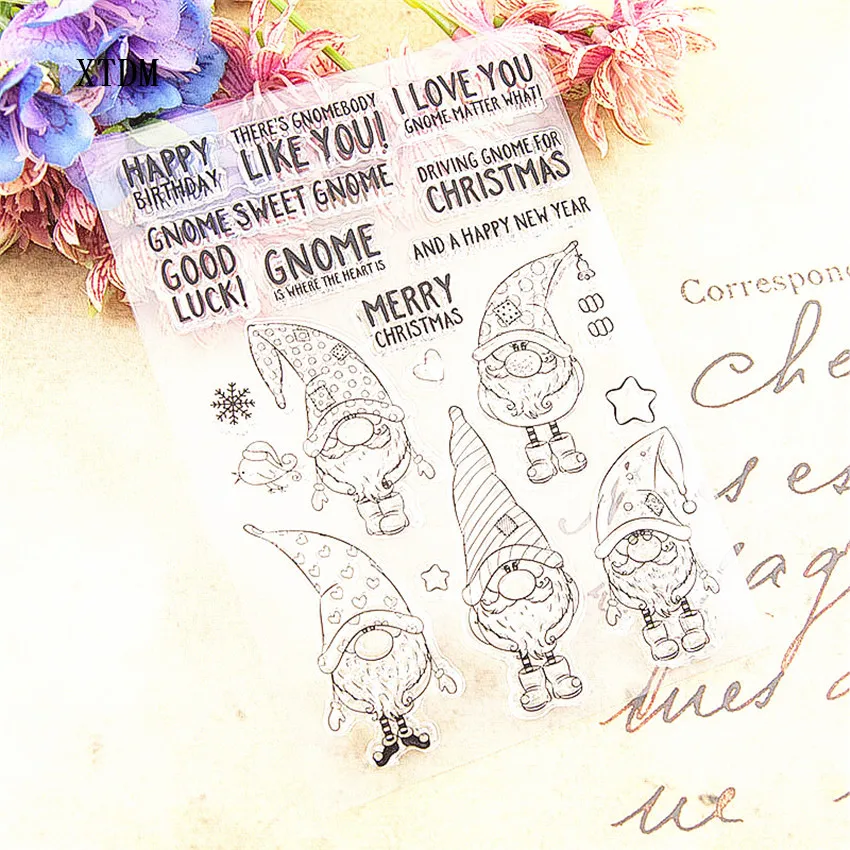 XTDM
HAPPY
BIRTHDAY
THERE'S GNOMEBODY
LIKE YOU!
I LOVE YOU
GNOME MATTER WHAT!
GNOME SWEET GNOME
DRIVING GNOME FOR
CHRISTMAS
GOOD
LUCK!
GNOME
IS WHERE THE HEART IS
AND A HAPPY NEW YEAR
MERRY
CHRISTMAS
Correspon